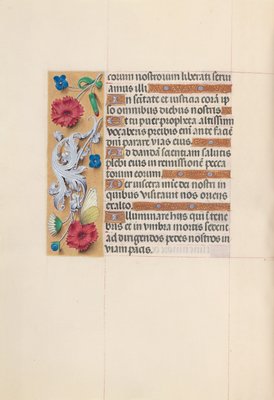 corum nostrorum liberati serui
amus illi.
In sc̄itate et iusticia corā ip
so omnibus diebus nostris.
Et tu puer propheta altissimi
vocaberis preibis em̄ ante faciē
dn̄i parare vias eius.
Ad dandā scientiam salutis
plebi eius in remissionē pecca
torum eorum.
Per viscera mīe dei nostri in
quibus visitauit nos oriens
ex alto.
Illuminare hiis qui ī tene
bris et in vmbra mortis sedent
ad dirigendos pedes nostros in
viam pacis.